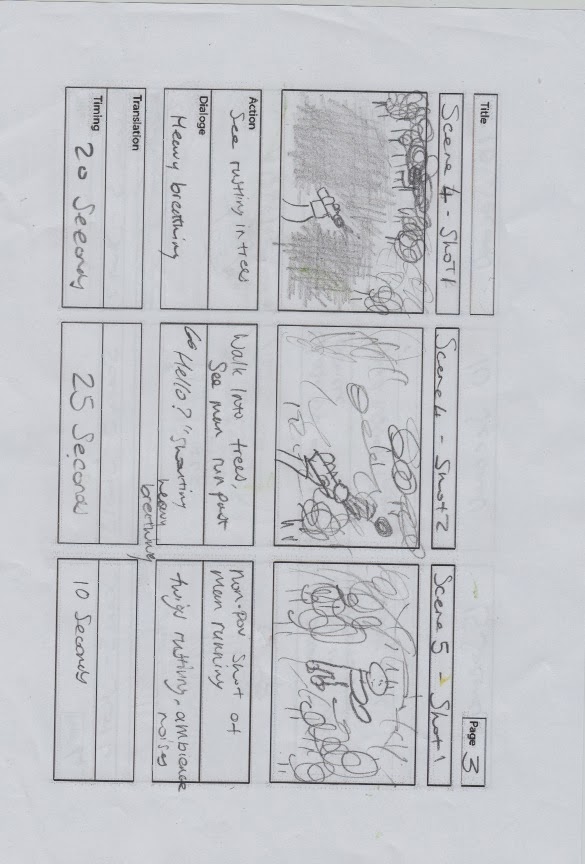 Title
Page 3
Scene 4 - Shot 1
Scene 4 - Shot 2
Scene 5 - Shot 1
Action
See rustling in trees
Walk into trees,
See man run past
non-pov shot of
man running
Dialoge
Heavy breathing
"Hello?" shouting
heavy
breathing
twigs rustling, ambience
noises
Translation
Timing
20 Seconds
25 Seconds
10 Seconds